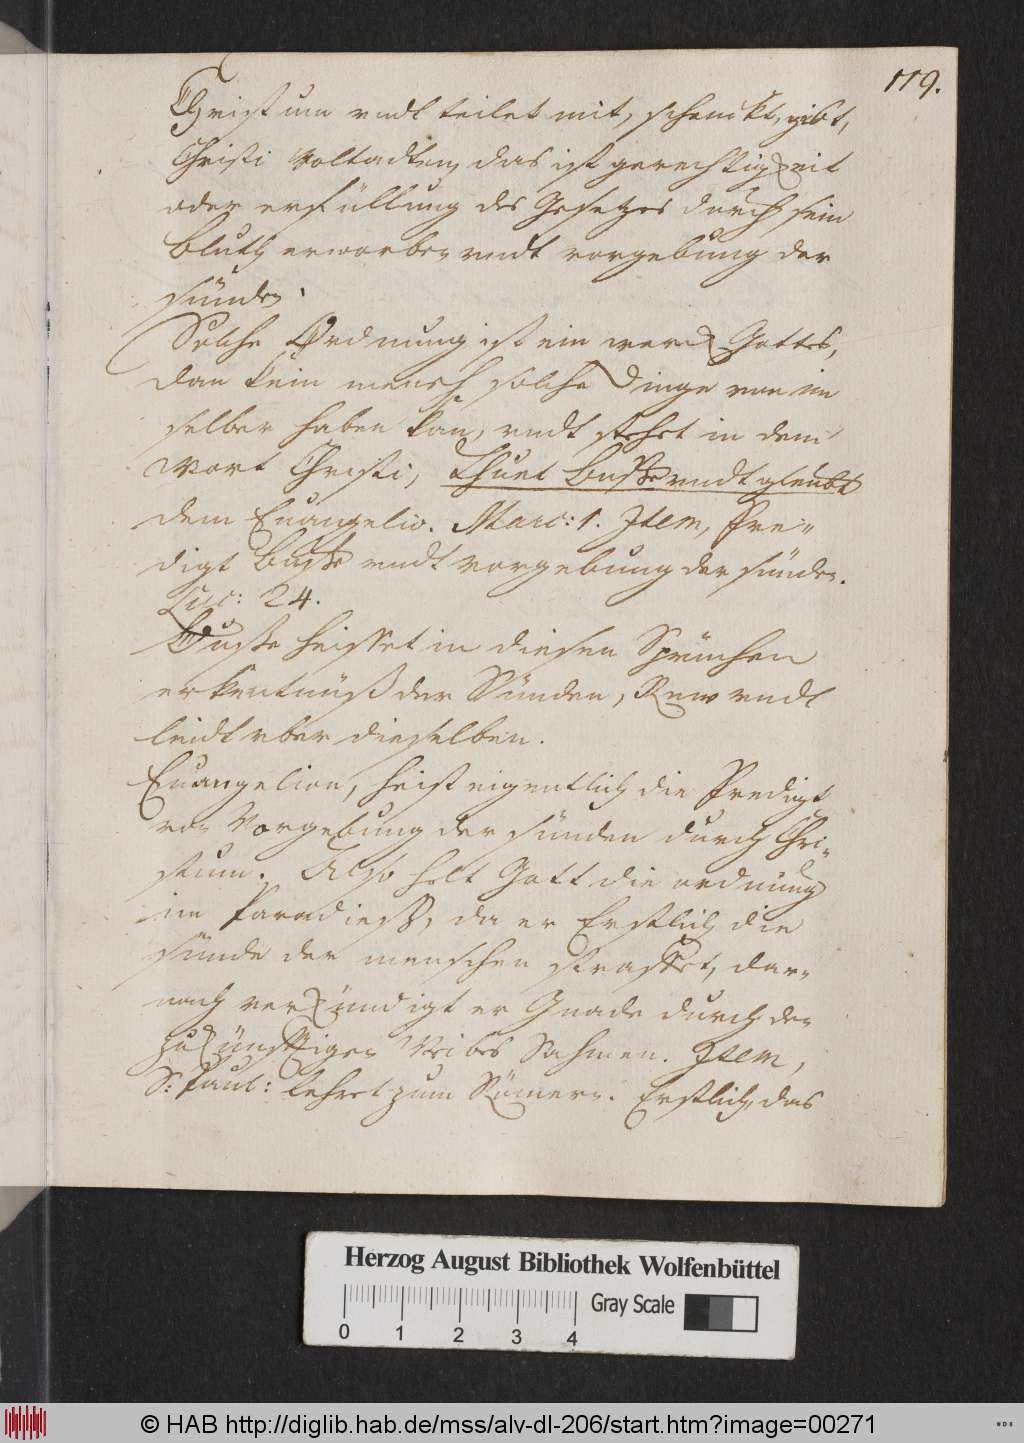 119.
Christum vndt teilet mit, schenckt, gibt,
Christi Woltadten, das ist gerechtigkeit
oder erfüllung des Gesetzes durch sein
Bluth erworben vndt vorgebung der
sünden.
Solche Ordnung ist ein werck Gottes,
dan kein mensch solche Dinge von im
selber haben kan, vndt stehet in dem
Wort Christi, Thuet Busse vndt gleubt
dem Euangelio. Marc: 1. Item, Pre=
digt Busse vndt vorgebung der sünden.
Luc: 24.
Busse heisset in diesen Sprüchen
erkentnüß der Sünden, Rew vndt
leidt vber dieselben.
Euangelion, heist eigentlich die Predigt
von Vorgebung der sünden durch Chri=
stum. Also helt Gott die ordnung
im Paradieß, da er Erstlich die
sünde der menschen straffet, dar=
nach verkündigt er Gnade durch den
zukünfftigen Weibes Sahmen. Item,
S: Paul: lehret zum Römern. Erstlich, das
Herzog August Bibliothek Wolfenbüttel
Gray Scale
0 1 2 3 4
© HAB http://diglib.hab.de/mss/alv-dl-206/start.htm?image=00271